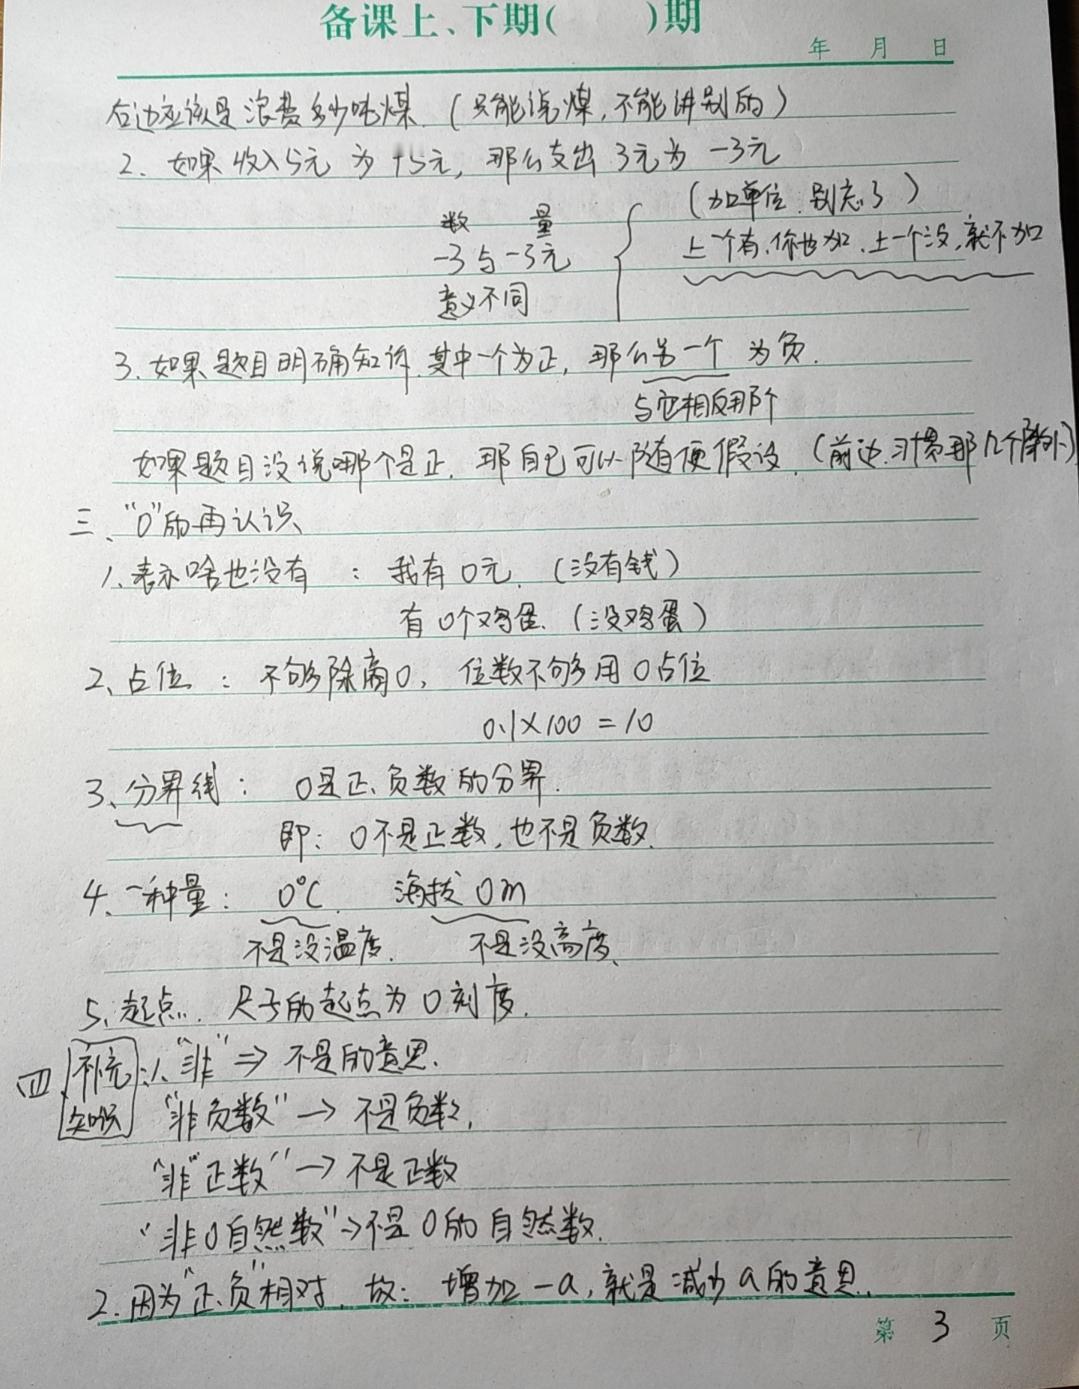 备课上、下期(　　)期
年 月 日
右边应该是浪费多少吨煤.(只能说煤,不能讲别的)
2. 如果收入5元为+5元,那么支出3元为-3元
数 量 (加单位:别忘了)
-3与-3元 上一个有,你也加、上一个没,就不加
意义不同
3. 如果题目明确知许.其中一个为正,那么另一个为负.
与它相反那个
如果题目没说哪个是正.那自己可以随便假设.(前边习惯那几个除外)
三、"0"的再认识
1、表示啥也没有 : 我有0元.(没有钱)
有0个鸡蛋.(没鸡蛋)
2、占位 : 不够除商0, 位数不够用0占位
0.1×100=10
3、分界线 : 0是正、负数的分界.
即: 0不是正数,也不是负数.
4、一种量 : 0℃. 海拔0m
不是没温度. 不是没高度、
5、起点. 尺子的起点为0刻度.
四、补充知识:1、"非" ⇒ 不是的意思.
"非负数" → 不是负数,
"非"正数" → 不是正数
"非0自然数" → 不是0的自然数.
2. 因为"正、负"相对. 故: 增加-a,就是减少a的意思.
第 3 页